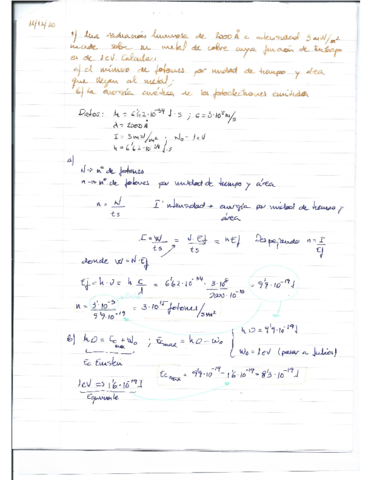 1) Una radiación luminosa de 2000 Å e intensidad 3 mW/m²
incide sobre un metal de cobre cuya función de trabajo
es de 1eV. Calcular:
a) el número de fotones por unidad de tiempo y área
que llegan al metal;
b) la energía cinética de los fotoelectrones emitidos
Datos: h = 6'62·10⁻³⁴ J·s ; c = 3·10⁸ m/s
λ = 2000 Å
I = 3 mW/m² ; W₀ = 1eV
h = 6'62·10⁻³⁴ J.s
a)
N → nº de fotones
n → nº de fotones por unidad de tiempo y área
n = N/t s I intensidad → energía por unidad de tiempo y
área
I = W/t s = N·Ef/t s = n Ef Despejando n = I/Ef
donde W = N·Ef
Ef = h·ν = h c/λ = 6'62·10⁻³⁴ · 3·10⁸/2000·10⁻¹⁰ = 9'9·10⁻¹⁹ J
n = 3·10⁻³/9'9·10⁻¹⁹ = 3·10¹⁵ fotones/sm²
b) hν = Ec max + W₀ ; Ec max = hν - W₀ { hν = 9'9·10⁻¹⁹ J
W₀ = 1eV (pasar a Julios)
Ec Einstein
1eV ⇒ 1'6·10⁻¹⁹ J
Equivale
Ec max = 9'9·10⁻¹⁹ - 1'6·10⁻¹⁹ = 8'3·10⁻¹⁹ J